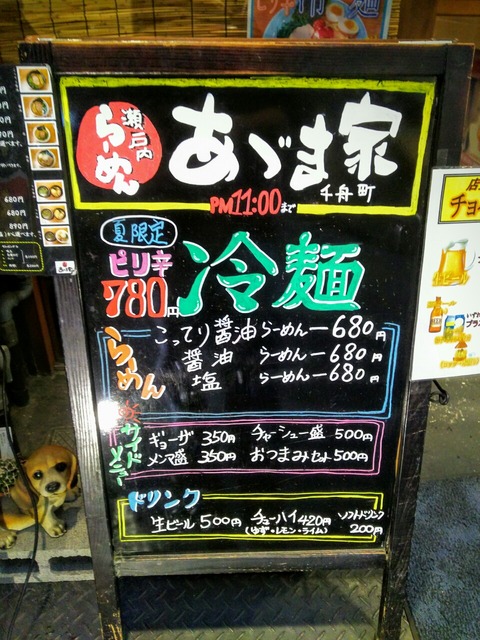 瀬戸内
らーめん
あづま家
千舟町
PM11:00まで
夏限定
ピリ辛
冷麺
780円
らーめん
こってり醤油らーめんー680円
醤油 らーめんー680円
塩 らーめんー680円
サイドメニュー
ギョーザ 350円 チャーシュー盛 500円
メンマ盛 350円 おつまみセット500円
ドリンク
生ビール 500円 チューハイ 420円 ソフトドリンク
(ゆず・レモン・ライム) 200円
680円
680円
890円